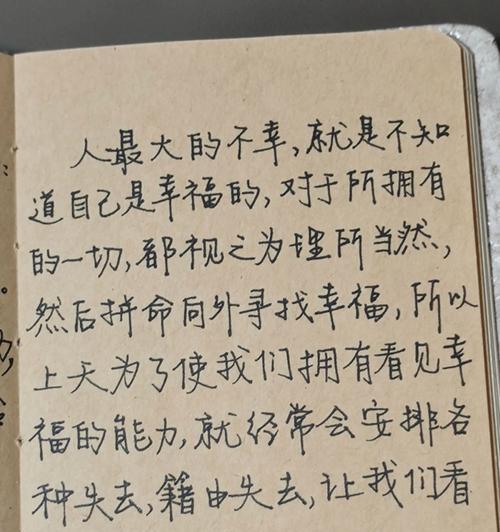 人最大的不幸,就是不知
道自己是幸福的,对于所拥有
的一切,都视之为理所当然,
然后拼命向外寻找幸福,所以
上天为了使我们拥有看见幸
福的能力,就经常会安排各
种失去,籍由失去,让我们看